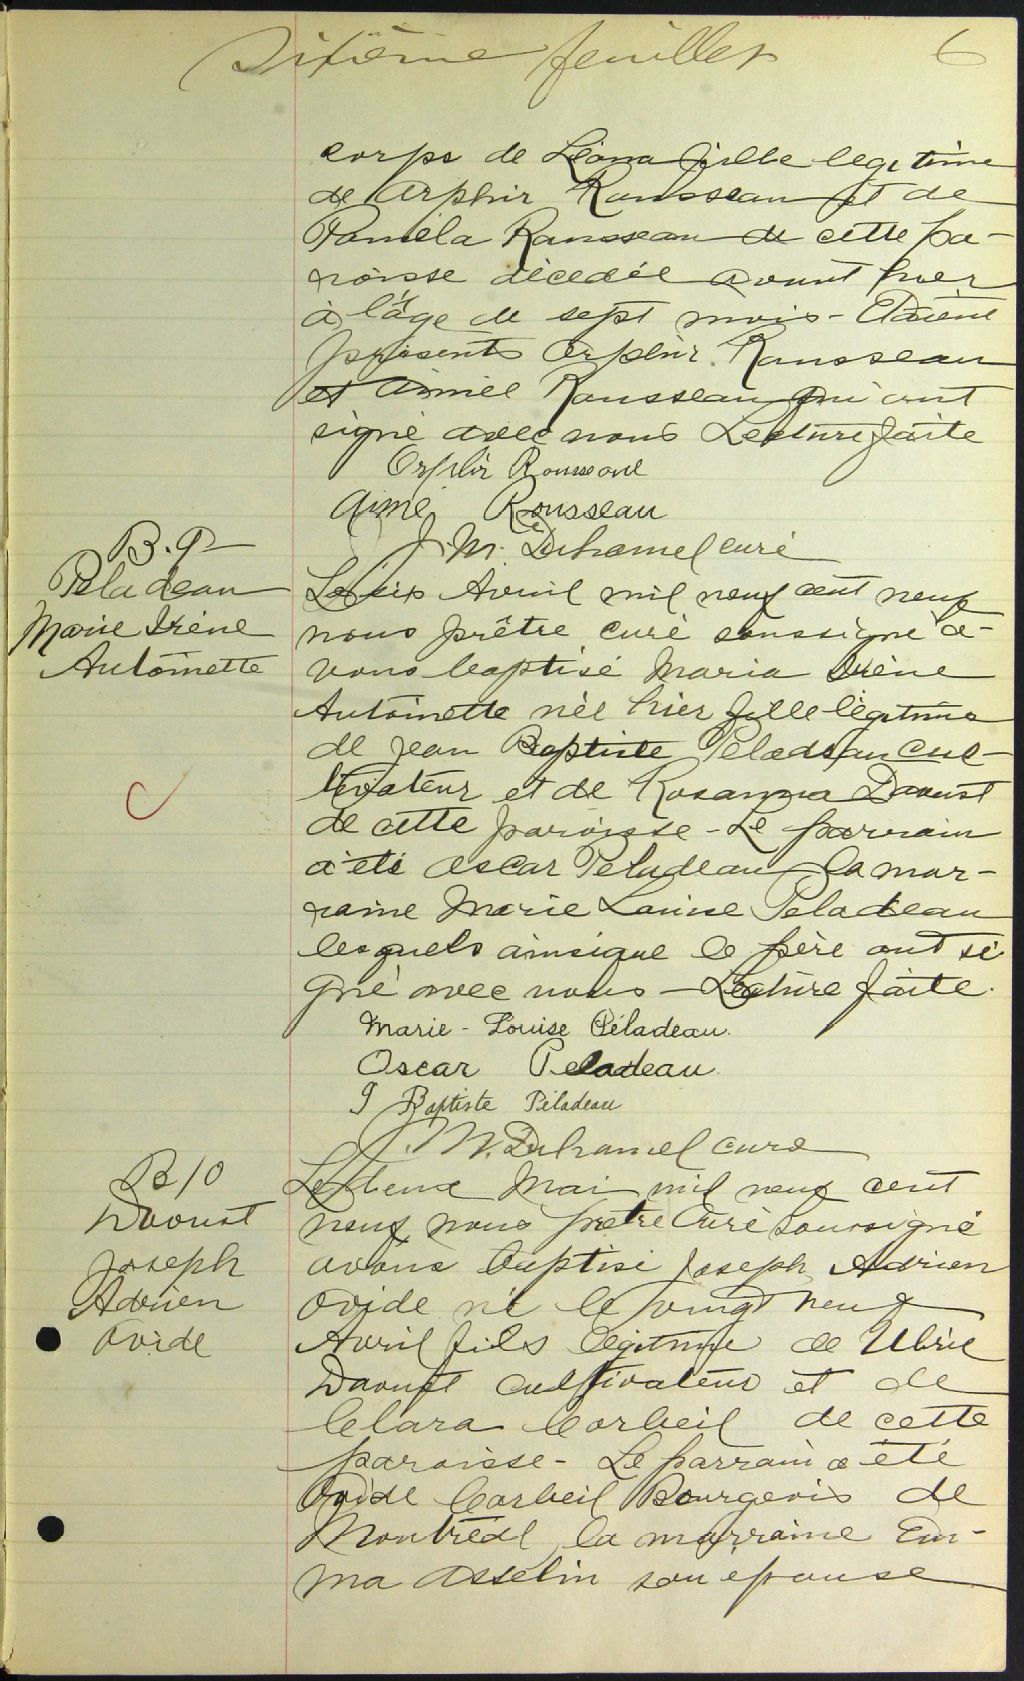 Sixième feuillet 6
corps de Léona fille légitime
de Orphir Rousseau et de
Paméla Rousseau de cette pa-
roisse décédée avant hier
à l'âge de sept mois - Etaient
présents Orphir Rousseau
et Aimé Rousseau qui ont
signé avec nous Lecture faite
Orphir Rousseau
Aimé Rousseau
J. M. Duhamel curé
B. 9
Peladeau
Marie Irène
Antoinette
Le six Avril mil neuf cent neuf
nous prêtre curé soussigné a-
vons baptisé Maria Irène
Antoinette née hier fille légitime
de Jean Baptiste Peladeau cul-
tivateur et de Rosanna Daoust
de cette paroisse - Le parrain
a été Oscar Peladeau la mar-
raine Marie Louise Peladeau
lesquels ainsique le père ont si
gné avec nous - Lecture faite.
Marie-Louise Péladeau.
Oscar Peladeau.
J Baptiste Péladeau
J. M. Duhamel curé
B 10
Daoust
Joseph
Adrien
Ovide
Le deux Mai mil neuf cent
neuf nous prêtre curé soussigné
avons baptisé Joseph Adrien
Ovide né le vingt neuf
Avril fils légitime de Ulric
Daoust cultivateur et de
Clara Corbeil de cette
paroisse - Le parrain a été
Ovide Corbeil Bourgeois de
Montréal la marraine Em-
ma Asselin son épouse